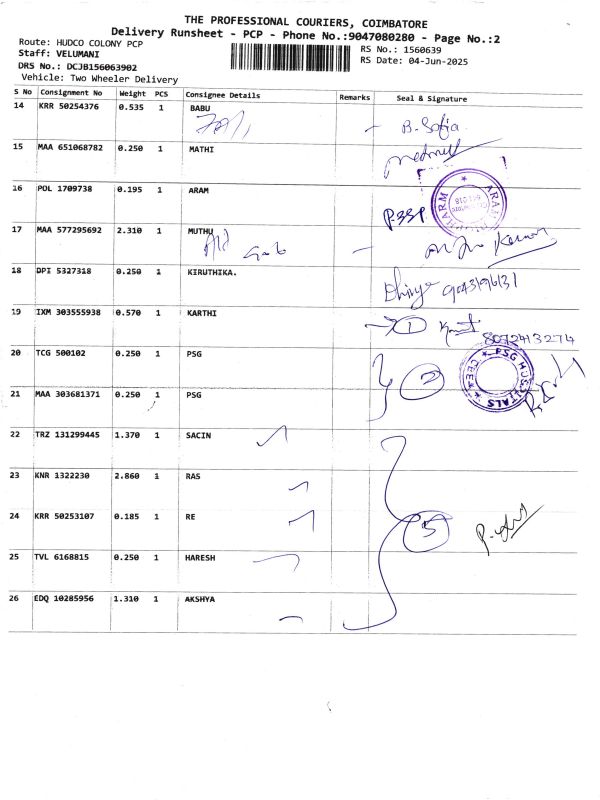 THE PROFESSIONAL COURIERS, COIMBATORE
Delivery Runsheet - PCP - Phone No.:9047080280 - Page No.:2
Route: HUDCO COLONY PCP
Staff: VELUMANI
DRS No.: DCJB156063902
Vehicle: Two Wheeler Delivery
RS No.: 1560639
RS Date: 04-Jun-2025
S No Consignment No Weight PCS Consignee Details Remarks Seal & Signature
14 KRR 50254376 0.535 1 BABU
B. Sofia
15 MAA 651068782 0.250 1 MATHI
16 POL 1709738 0.195 1 ARAM
ARAM
17 MAA 577295692 2.310 1 MUTHU
18 DPI 5327318 0.250 1 KIRUTHIKA.
19 IXM 303555938 0.570 1 KARTHI
1
8072413274
20 TCG 500102 0.250 1 PSG
2
PSG HOSPITALS
21 MAA 303681371 0.250 1 PSG
22 TRZ 131299445 1.370 1 SACIN
23 KNR 1322230 2.860 1 RAS
24 KRR 50253107 0.185 1 RE
5
25 TVL 6168815 0.250 1 HARESH
26 EDQ 10285956 1.310 1 AKSHYA